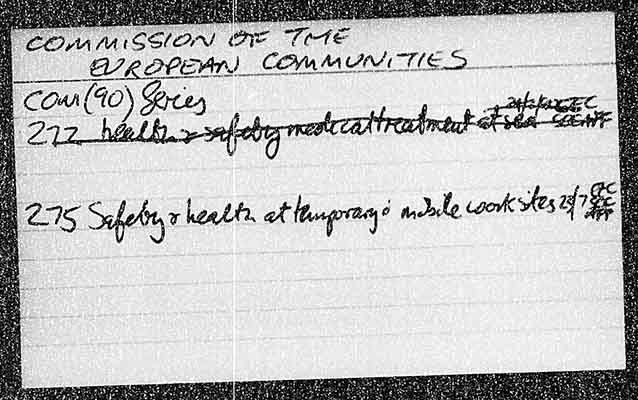 COMMISSION OF THE
EUROPEAN COMMUNITIES
COM (90) Series
272 health & safety medical treatment at sea
275 Safety & health at temporary & mobile work sites